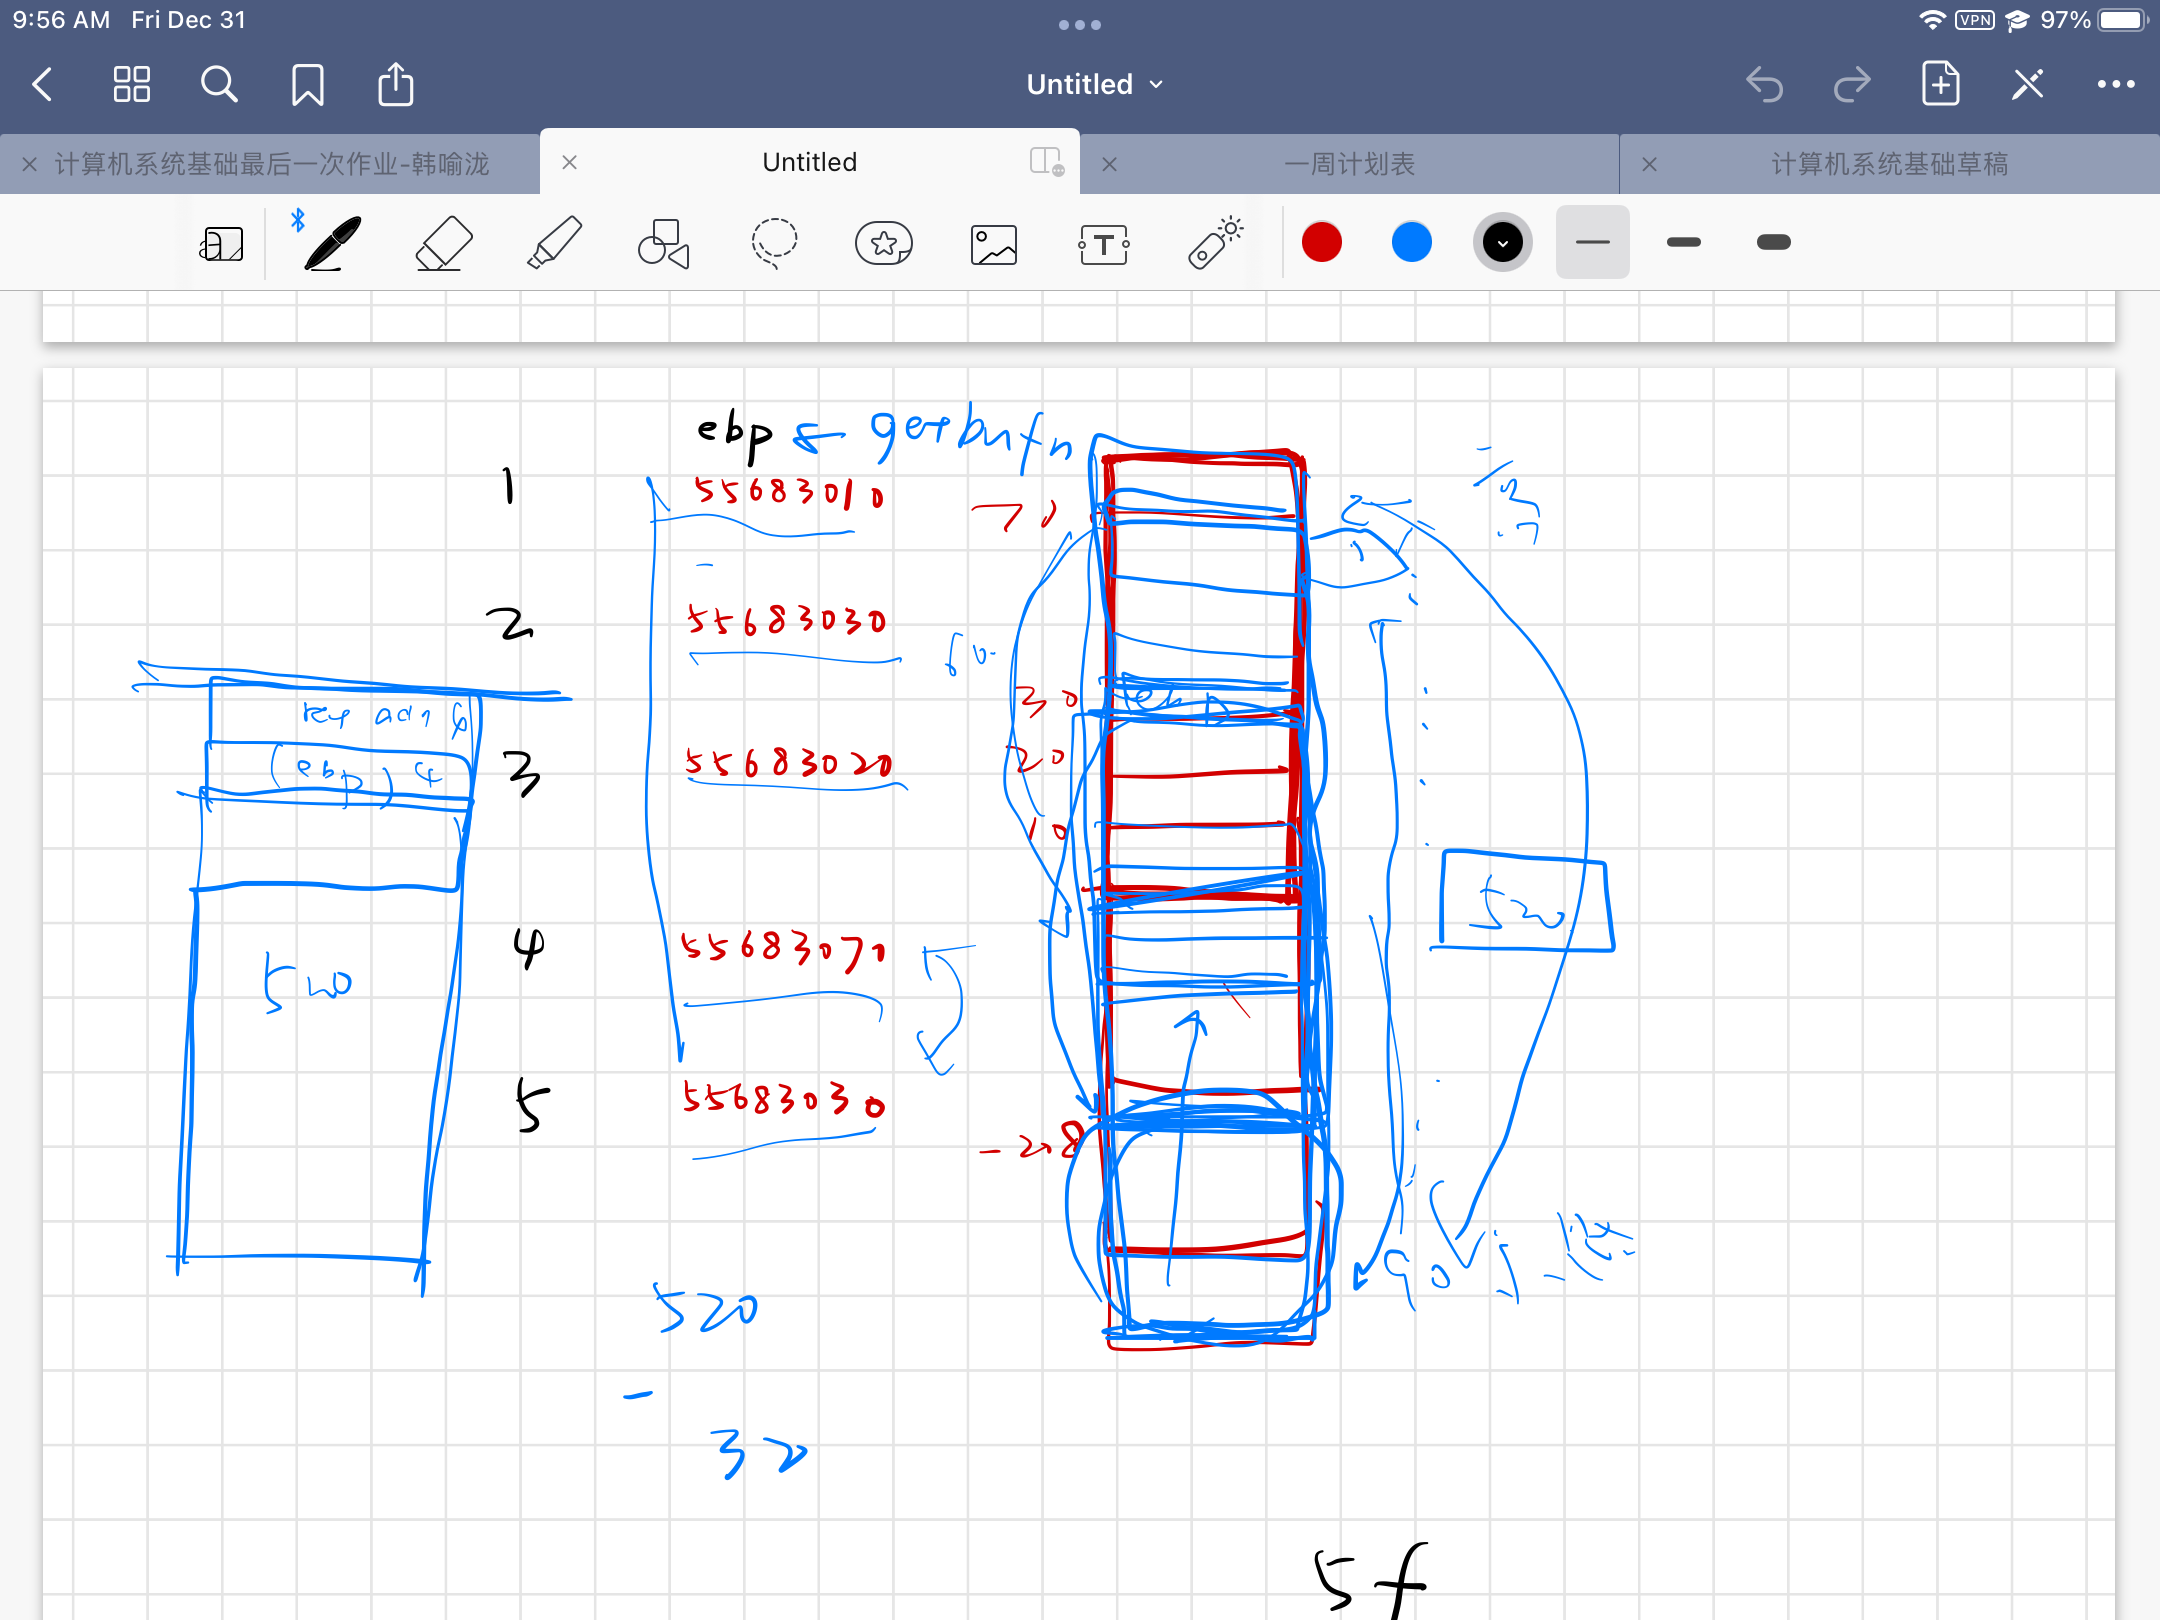 9:56 AM Fri Dec 31
VPN 97%
Untitled
计算机系统基础最后一次作业-韩喻泷
Untitled
一周计划表
计算机系统基础草稿
ebp ← getbufn
1 55683010
2 55683030
3 55683020
4 55683070
5 55683030
70
60
30
20
10
-208
(ebp) 4
520
520
520
-
32
5f